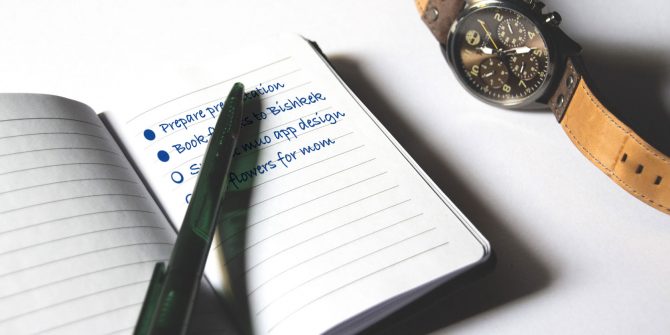 Prepare
Book to Bishkek
app design
flowers for mom